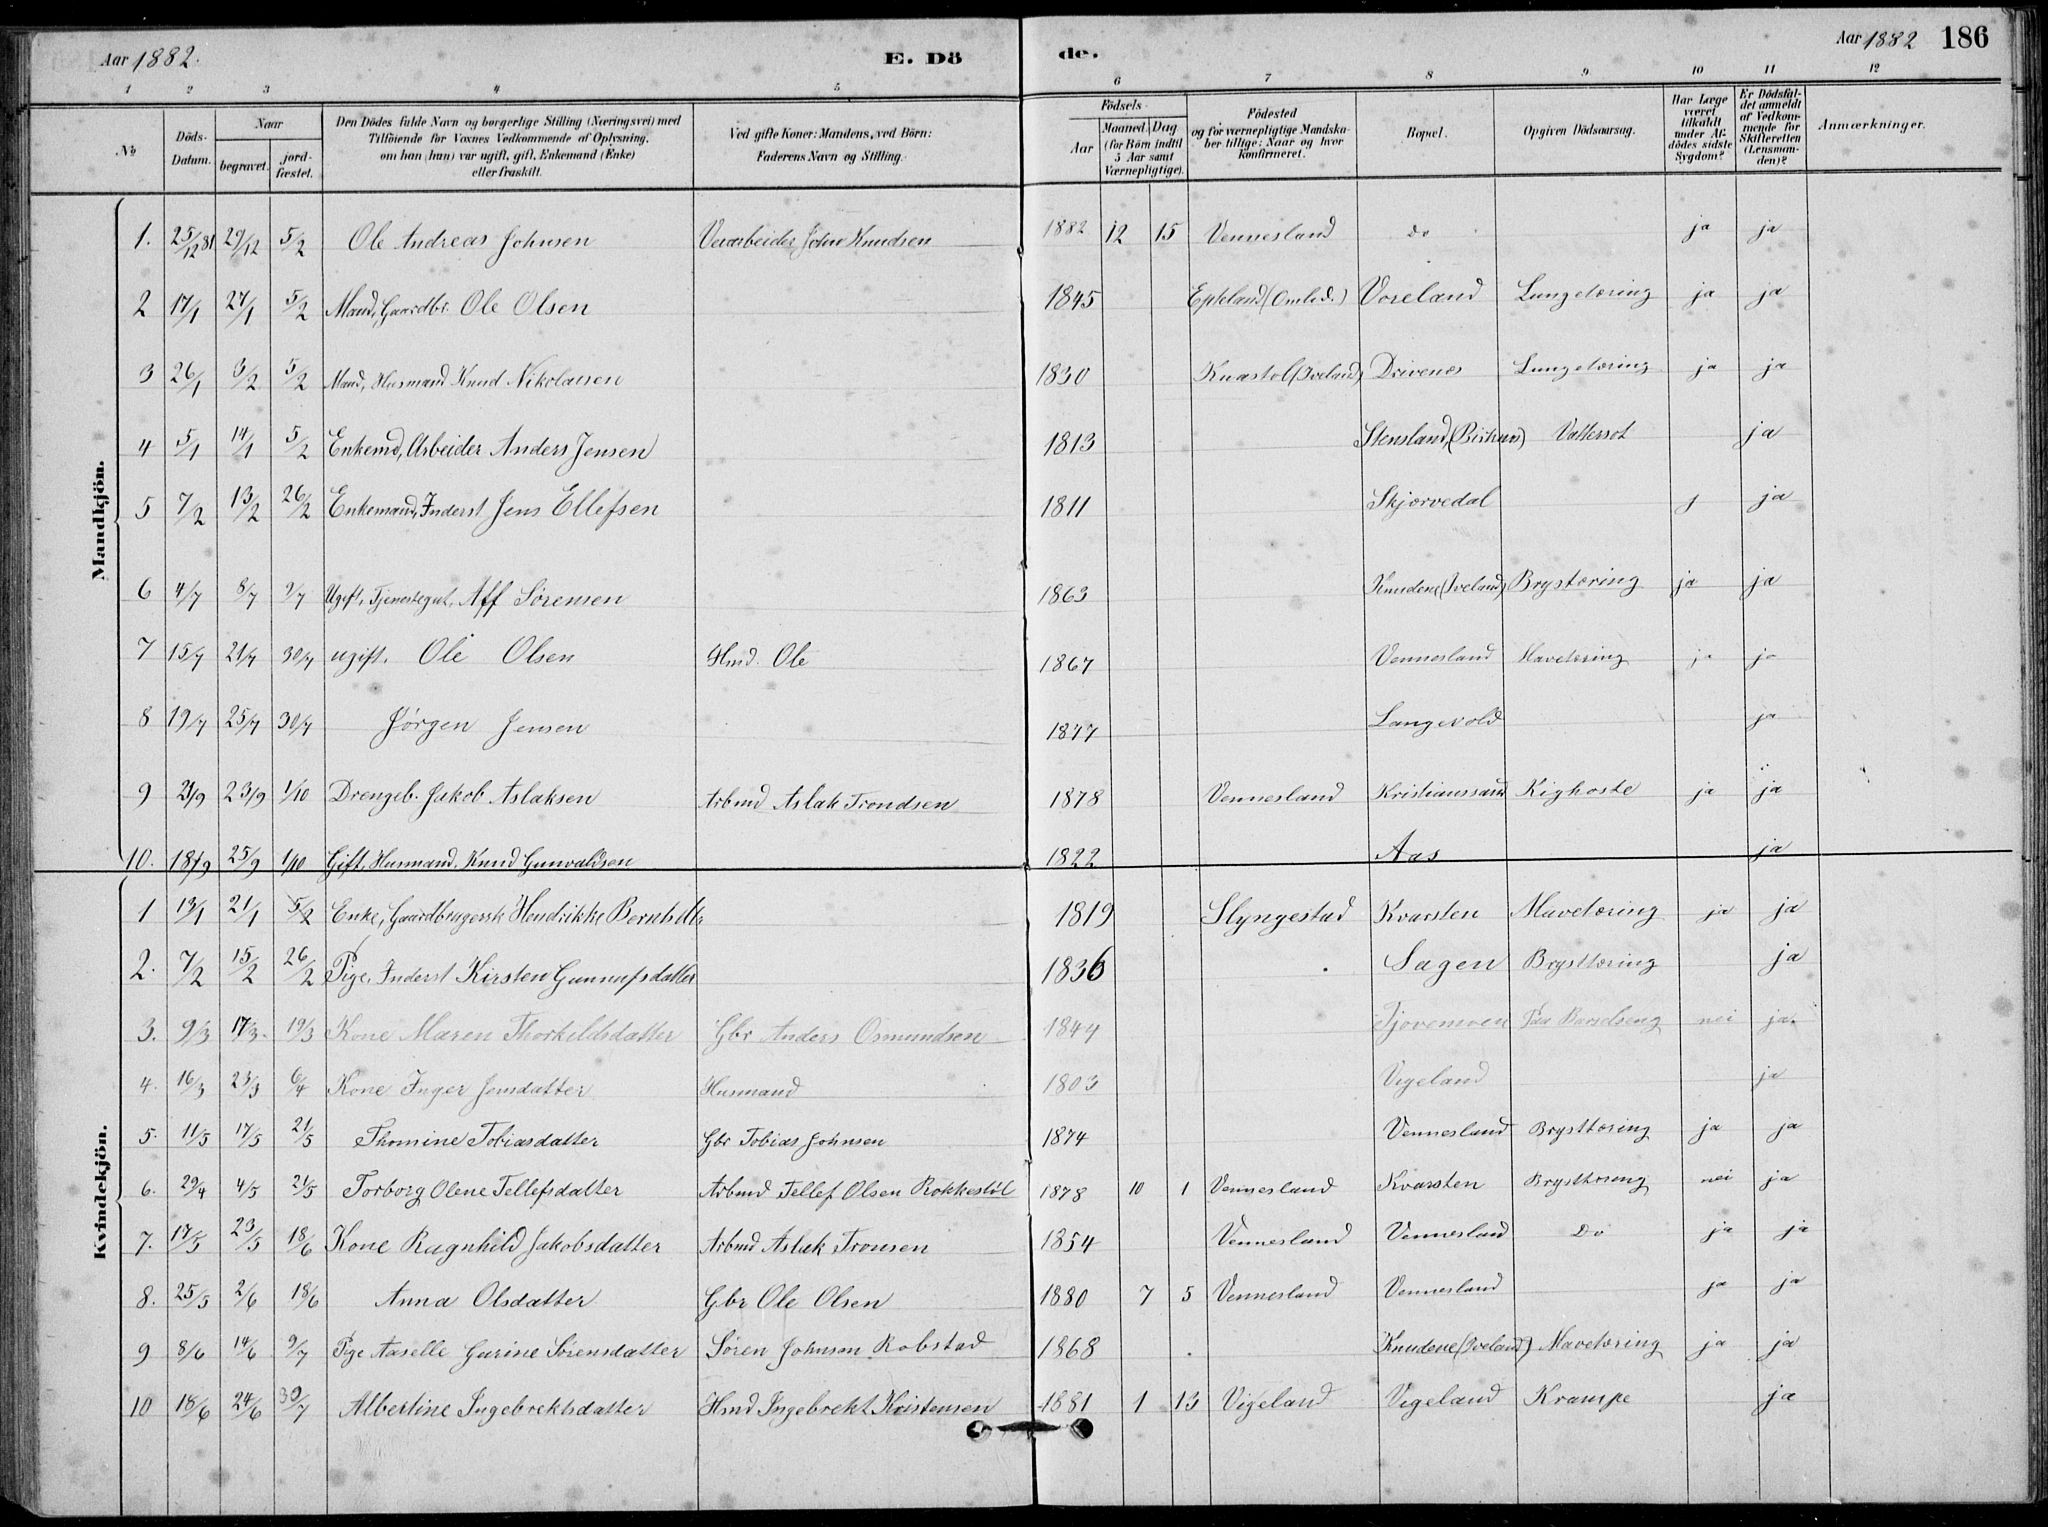 Aar 1882. E. Dö de. Aar 1882 186
1 2 3 4 5 6 7 8 9 10 11 12
No Döds-Datum. Naar begravet. jordfæstet. Den Dödes fulde Navn og borgerlige Stilling (Næringsvei) med Tilföiende for Voxnes Vedkommende af Oplysning, om han (hun) var ugift, gift, Enkemand (Enke) eller fraskilt. Ved gifte Koner: Mandens, ved Börn: Faderens Navn og Stilling. Födsels- Aar Maaned Dag (for Börn indtil 5 Aar samt Værnepligtige). Födested og for værnepligtige Mandskaber tillige: Naar og hvor konfirmeret. Bopæl. Opgiven Dödsaarsag. Har Læge været tilkaldt under Afdödes sidste Sygdom? Er Dödsfaldet anmeldt af Vedkommende for Skifteretten (Lensmanden)? Anmærkninger.
Mandkjön.
1. 25/12 81 29/12 5/2 Ole Andreas Johnsen John Knudsen 1882 12 15 Vennesland do ja ja
2 17/1 27/1 5/2 Mand, Gaardbr. Ole Olsen 1845 Voreland Lungetæring ja ja
3 26/1 3/2 5/2 Mand, Husmand Knud Nikolaisen 1830 (Iveland) Drivenes Lungetæring ja ja
4 5/1 14/1 5/2 Enkemd, Arbeider Anders Jensen 1813 Stensland, Vattersot ja
5 7/2 13/2 26/2 Enkemand, Inderst Jens Ellefsen 1811 Skjærvedal j ja
6 4/7 8/7 9/7 Ugift, Tjenestegut, Aff Sørensen 1863 Knudene (Iveland) Brysttæring ja ja
7 15/7 21/7 30/7 ugift. Ole Olsen Hmd. Ole 1867 Vennesland Mavetæring ja ja
8 19/7 25/7 30/7 Jørgen Jensen 1877 Langevold ja
9 21/9 23/9 1/10 Drengeb. Jakob Aslaksen Arbmd Aslak Trondsen 1878 Vennesland Kristianssand Kighoste ja ja
10. 18/9 25/9 1/10 Gift, Husmand, Knud Gunvaldsen 1822 Aas ja
Kvindekjön.
1 13/1 21/1 5/2 Enke, Gaardbrugersk Hendrikke Berntsdtr 1819 Slyngestad Kvarsten Mavetæring ja ja
2. 7/2 15/2 26/2 Pige, Inderst Kirsten Gunnufsdatter 1836 Sagen Brysttæring ja
3. 9/3 17/3 19/3 Kone Maren Thorkeldsdatter Gbr Anders Osmundsen 1844 Tjovenmoen Paa Barselseng nei ja.
4. 16/3 23/3 6/4 Kone Inger Jensdatter Husmand 1803 Vigeland ja
5. 11/5 17/5 21/5 Thomine Tobiasdatter Gbr Tobias Johnsen 1874 Vennesland Brysttæring ja ja
6. 29/4 4/5 21/5 Torborg Olene Tellefsdatter Arbmd Tellef Olsen Rokkestöl 1878 10 1 Vennesland Kvarsten Brysttæring nei ja
7. 17/5 23/5 18/6 Kone Ragnhild Jakobsdatter Arbmd Aslak Tronsen 1854 Vennesland Vennesland Do ja ja
8. 25/5 2/6 18/6 Anna Olsdatter Gbr Ole Olsen 1880 7 5 Vennesland Vennesland ja ja
9 8/6 14/6 9/7 Pige Aaselle Gurine Sørensdatter Søren Johnsen Robstad 1868 Knudene (Iveland) Mavetæring ja ja
10 18/6 24/6 30/7 Albertine Ingebrektsdatter Hmd Ingebrekt Kristensen 1881 1 13 Vigeland Vigeland Krampe ja